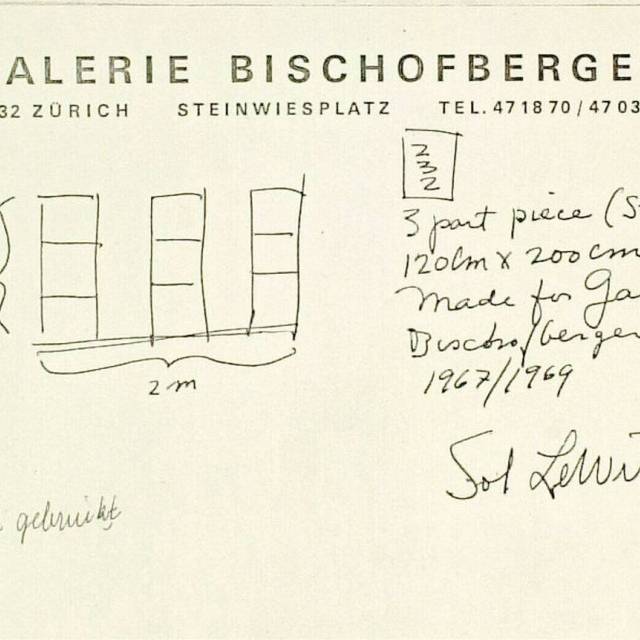 ALERIE BISCHOFBERGE
32 ZÜRICH STEINWIESPLATZ TEL. 47 18 70 / 47 03
232
3 part piece (S
120cm x 200cm
Made for Ga
Bischofberger
1967/1969
2 m
Sol LeWi